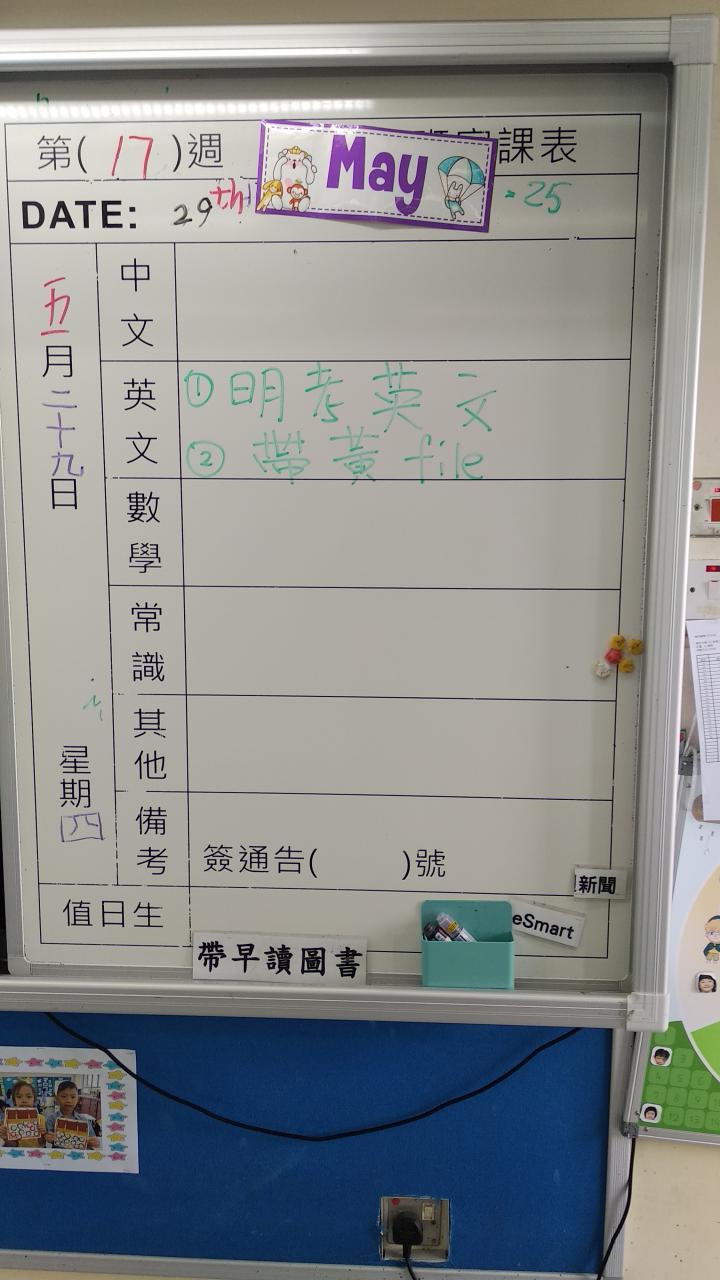 第( 17 )週 May 課表
DATE: 29th 25
五月二十九日
星期四
中文
英文
①明考英文
②帶黃file
數學
常識
其他
備考
簽通告( )號
新聞
值日生
eSmart
帶早讀圖書